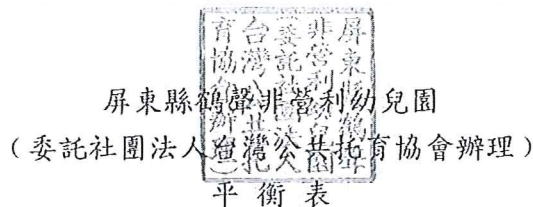 屏東縣鶴聲非營利幼兒園
（委託社團法人台灣公共托育協會辦理）
平衡表